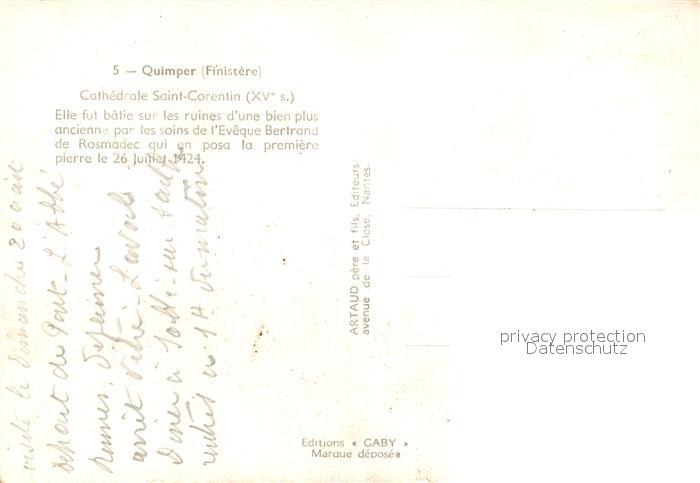 5 — Quimper (Finistère)
Cathédrale Saint-Corentin (XVᵉ s.)
Elle fut bâtie sur les ruines d'une bien plus
ancienne par les soins de l'Evêque Bertrand
de Rosmadec qui en posa la première
pierre le 26 Juillet 1424.
visité le Dimanche 20 août
depart de Pont-L'Abbé
Rennes, dejeuner
arrêt Vitré - Laval
Diner à
rentrés à 1H du matin
ARTAUD père et fils, Editeurs
avenue de la Close, Nantes.
Editions « GABY »
Marque déposée
privacy protection
Datenschutz